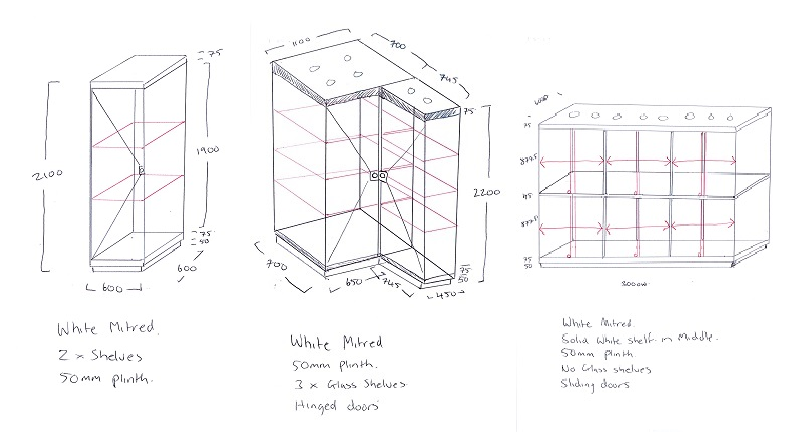 75
2100
1900
75
50
600
600
White Mitred.
2 x Shelves
50mm plinth.
1100
700
745
75
2200
75
50
700
650
745
450
White Mitred
50mm plinth.
3 x Glass Shelves.
Hinged doors
75
877.5
75
877.5
75
50
White Mitred.
Solid White shelf in Middle.
50mm plinth.
No Glass shelves
Sliding doors